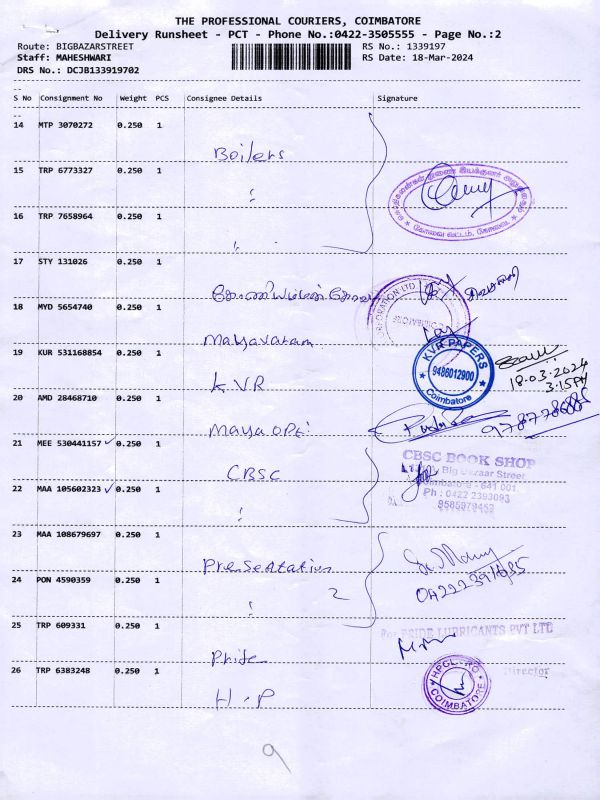 THE PROFESSIONAL COURIERS, COIMBATORE
Delivery Runsheet - PCT - Phone No.:0422-3505555 - Page No.:2
Route: BIGBAZARSTREET RS No.: 1339197
Staff: MAHESHWARI RS Date: 18-Mar-2024
DRS No.: DCJB133919702
S No Consignment No Weight PCS Consignee Details Signature
14 MTP 3070272 0.250 1
Boilers
15 TRP 6773327 0.250 1
16 TRP 7658964 0.250 1
17 STY 131026 0.250 1
18 MYD 5654740 0.250 1
Mayavaram
19 KUR 531168854 0.250 1
KVR
KVR PAPERS
9486012900
Coimbatore
18.03.2024
3.15PM
20 AMD 28468710 0.250 1
Maya OPt
21 MEE 530441157 0.250 1
CBSC
CBSC BOOK SHOP
Big Bazaar Street
Coimbatore - 641 001.
Ph : 0422 2393093
22 MAA 105602323 0.250 1
23 MAA 108679697 0.250 1
Presentation
24 PON 4590359 0.250 1
2
25 TRP 609331 0.250 1
Pride
For PRIDE LUBRICANTS PVT LTD
Director
26 TRP 6383248 0.250 1
H.P
COIMBATORE
9